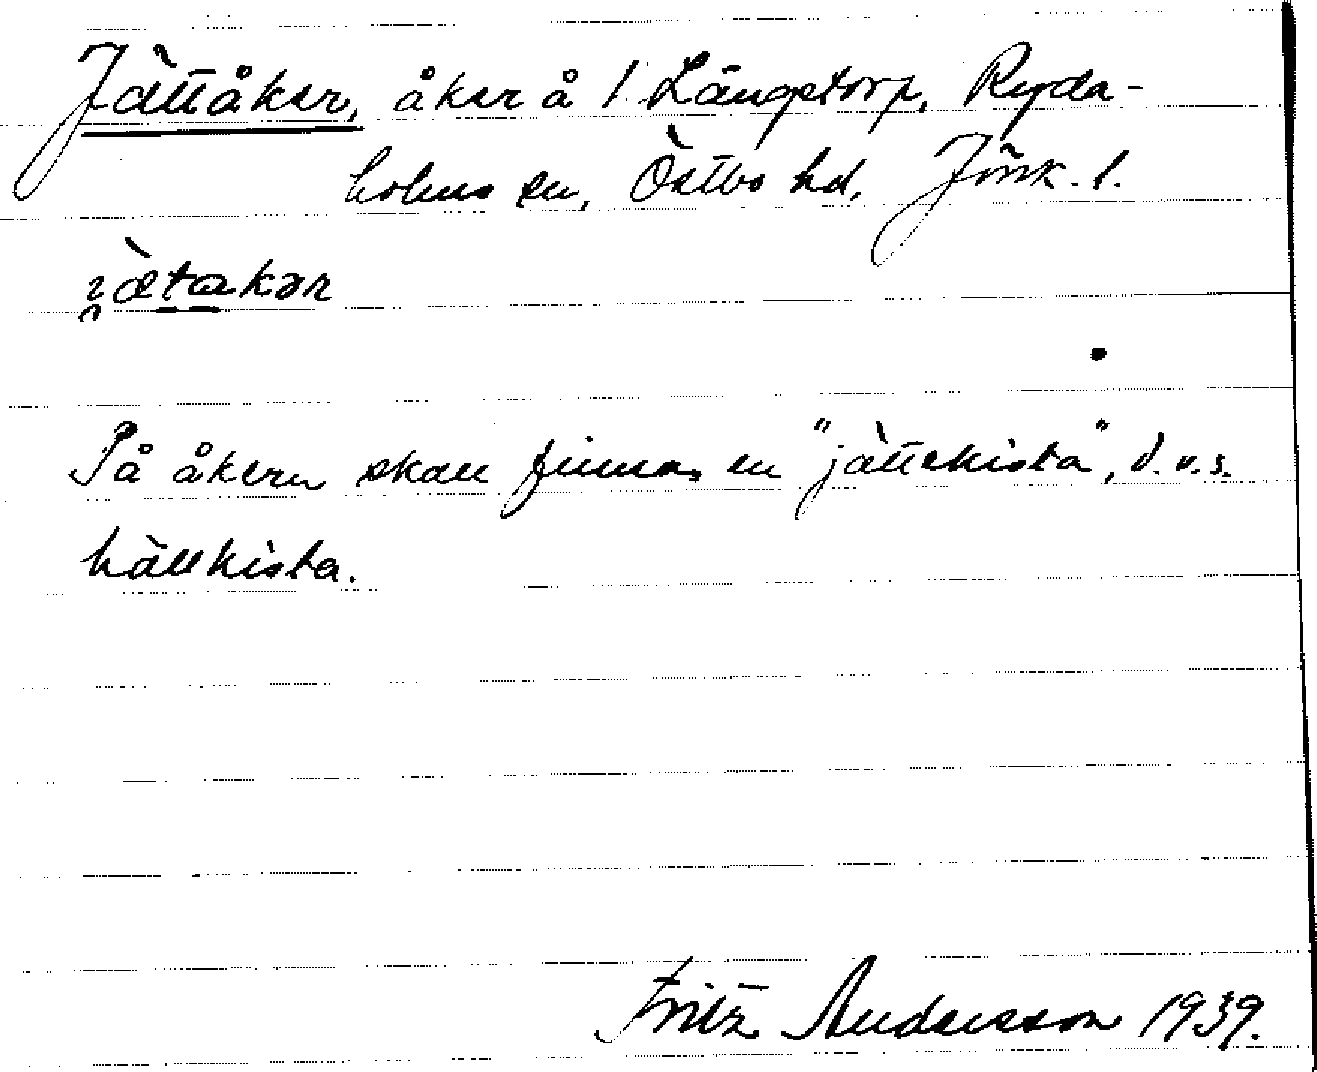 Jättåker, åker å 1 Långstorp, Ryda-
holms sn, Östbo hd, Jönk. l.
i̯ætakər
På åkern skall finnas en "jättekista", d.v.s.
hällkista.
Fritz Andersson 1939.